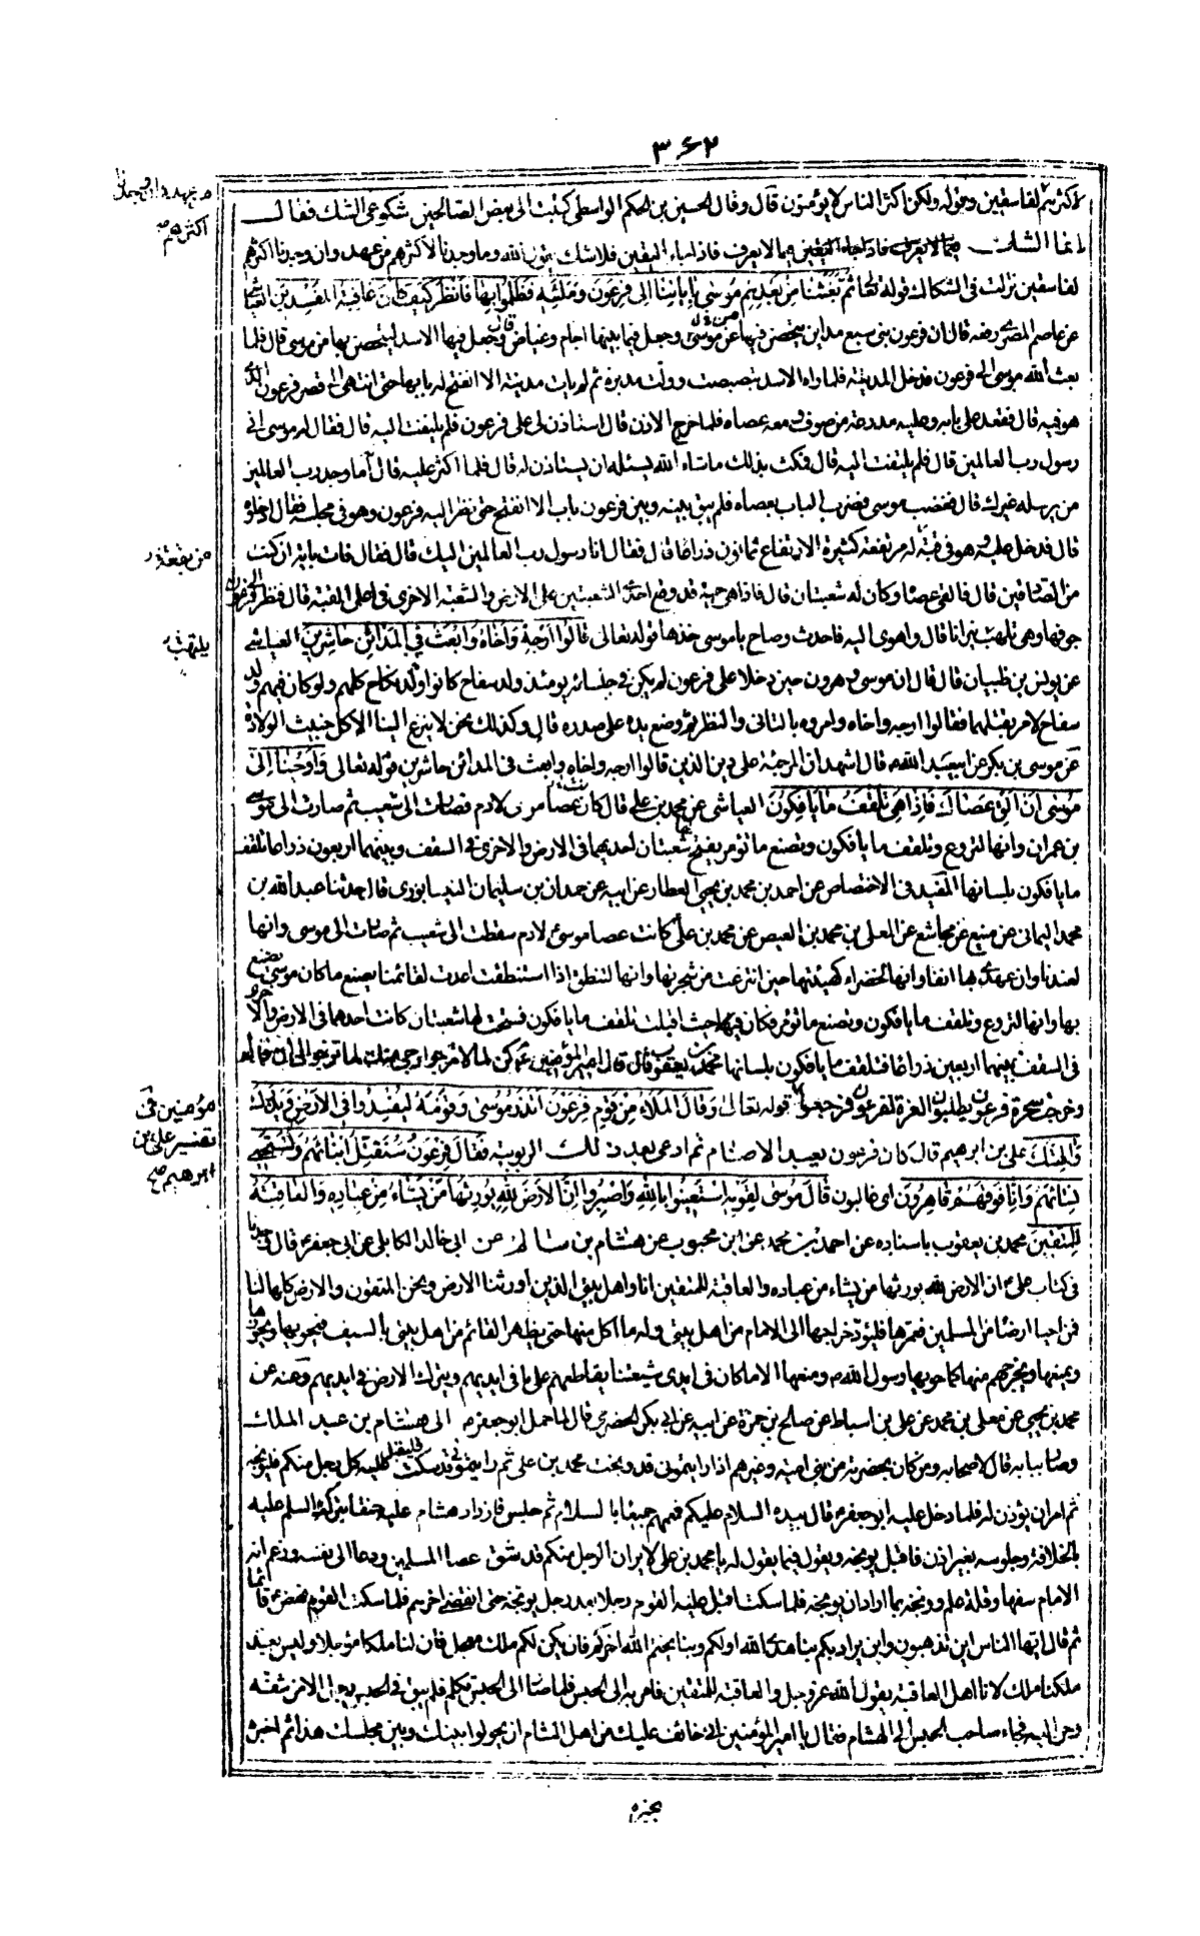 ٣٦٢
لاكثرهم لفاسقين وقوله ولكن اكثر الناس لا يؤمنون قال وقال الحسين بن الحكم الواسطي كتبت الى بعض الصالحين شكوى الشك فقال
انما الشك فيما لا يعرف فاذا جاء اليقين فلا شك يقول الله وما وجدنا لاكثرهم من عهد وان وجدنا اكثرهم
لفاسقين نزلت في الشكاك قوله تعالى ثم بعثنا من بعدهم موسى باياتنا الى فرعون وملئه فظلموا بها فانظر كيف كان عاقبة المفسدين العياشي
عن عاصم المصري رفعه قال ان فرعون بنى سبع مداين يتحصن فيها من موسى وجعل فيما بينها اجام وغياض وجعل فيها الاسد ليتحصن بها من موسى قال فلما
بعث الله موسى الى فرعون فدخل المدينة فلما راه الاسد تبصبصت وولت مدبرة ثم لم يات مدينة الا انفتح له بابها حتى انتهى الى قصر فرعون الذي
هو فيه قال فقعد على بابه وعليه مدرعة من صوف ومعه عصاه فلما خرج الاذن قال استاذن لي على فرعون فلم يلتفت اليه قال فقال له موسى اني
رسول رب العالمين قال فلم يلتفت اليه قال فمكث بذلك ماشاء الله يسئله ان يستاذن له قال فلما اكثر عليه قال اما وجد رب العالمين
من يرسله غيرك قال فغضب موسى فضرب الباب بعصاه فلم يبق بينه وبين فرعون باب الا انفتح حتى نظر اليه فرعون وهو في مجلسه فقال ادخلوه
قال فدخل عليه وهو في قبة له مرتفعة كثيرة الارتفاع ثمانون ذراعا قال فقال انا رسول رب العالمين اليك قال فقال فات باية ان كنت
من الصادقين قال فالقى عصاه وكان له شعبتان قال فاذا هي حية قد وقع احدى الشعبتين على الارض والشعبة الاخرى في اعلى القبة قال فنظر فرعون الى
جوفها وهي تلهب نيرانا قال واهوى اليه فاحدث وصاح يا موسى خذها قوله تعالى قالوا ارجه واخاه وابعث في المدائن حاشرين العياشي
عن يونس بن ظبيان قال قال ان موسى وهرون حين دخلا على فرعون لم يكن في جلسائه يومئذ ولد سفاح كانوا ولد نكاح كلهم ولو كان فيهم ولد
سفاح لامر بقتلهما فقالوا ارجه واخاه وامروه بالتاني والنظر ثم وضع يده على صدره قال وكذلك نحن لا ينزع الينا الا كل خبيث الولادة
عن موسى بن بكر عن ابي عبد الله قال اشهد ان المرجئة على دين الذين قالوا ارجه واخاه وابعث في المدائن حاشرين قوله تعالى واوحينا الى
موسى ان الق عصاك فاذا هي تلقف ما يافكون العياشي عن محمد بن علي قال كان عصا موسى لادم فصارت الى شعيب ثم صارت الى موسى
بن عمران وانها لتروع وتلقف ما يافكون وتصنع ما تؤمر يفتح لها شعبتان احديهما في الارض والاخرى في السقف وبينهما اربعون ذراعا تلقف
ما يافكون بلسانها المفيد في الاختصاص عن احمد بن محمد بن يحيى العطار عن ابيه عن حمدان بن سليمان النيسابوري قال حدثنا عبد الله بن
محمد اليماني عن منيع عن مجاشع عن المعلى بن محمد بن الفيض عن محمد بن علي كانت عصا موسى لادم سقطت الى شعيب ثم صارت الى موسى وانها
لعندنا وان عهدي بها انفا وانها لخضراء كهيئتها حين انتزعت من شجرتها وانها لتنطق اذا استنطقت اعدت لقائمنا يصنع ما كان موسى يصنع
بها وانها لتروع وتلقف ما يافكون وتصنع ما تؤمر فكان حيث اقبلت تلقف ما يافكون فتحت لها شعبتان كانت احدهما في الارض والاخرى
في السقف بينهما اربعين ذراعا فتلقف ما يافكون بلسانها محمد بن يعقوب قال قال امير المؤمنين كن لما لا ترجوا ارجى منك لما ترجوا الى ان قال
وخرج سحرة فرعون يطلبون العزة لفرعون فرجعوا قوله تعالى وقال الملاء من قوم فرعون اتذر موسى وقومه ليفسدوا في الارض ويذرك
والهتك علي بن ابراهيم قال كان فرعون يعبد الاصنام ثم ادعى بعد ذلك الربوبية فقال فرعون سنقتل ابنائهم ونستحيي
نسائهم وانا فوقهم قاهرون اي غالبون قال موسى لقومه استعينوا بالله واصبروا ان الارض لله يورثها من يشاء من عباده والعاقبة
للمتقين محمد بن يعقوب باسناده عن احمد بن محمد عن ابن محبوب عن هشام بن سالم عن ابي خالد الكابلي عن ابي جعفر قال وجدنا
في كتاب علي ان الارض لله يورثها من يشاء من عباده والعاقبة للمتقين انا واهل بيتي الذين اورثنا الارض ونحن المتقون والارض كلها لنا
فمن احيا ارضا من المسلمين فعمرها فليؤد خراجها الى الامام من اهل بيتي وله ما اكل منها حتى يظهر القائم من اهل بيتي بالسيف فيحويها
ويمنعها ويخرجهم منها كما حويها رسول الله ومنعها الا ما كان في ايدي شيعتنا يقاطعهم على ما في ايديهم ويترك الارض في ايديهم وعنه عن
محمد بن يحيى عن معلى بن محمد عن علي بن اسباط عن صالح بن حمزة عن ابيه عن ابي بكر الحضرمي قال لما حمل ابو جعفر الى هشام بن عبد الملك
وصار ببابه قال لاصحابه ومن كان بحضرته من بني امية وغيرهم اذا رايتموني قد وبخت محمد بن علي ثم رايتموني قد سكت فليقبل عليه كل رجل منكم فليوبخه
ثم امر ان يؤذن له فلما دخل عليه ابو جعفر قال بيده السلام عليكم فعمهم جميعا بالسلام ثم جلس فازداد هشام عليه حنقا بتركه السلم عليه
بالخلافة وجلوسه بغير اذن فاقبل يوبخه ويقول فيما يقول له يا محمد بن علي لا يزال الرجل منكم قد شق عصا المسلمين ودعا الى نفسه وزعم انه
الامام سفها وقلة علم ووبخه بما اراد ان يوبخه فلما سكت اقبل عليه القوم رجلا بعد رجل يوبخه حتى انقضى اخرهم فلما سكت القوم نهض قائما
ثم قال ايها الناس اين تذهبون واين يراد بكم بنا هدى الله اولكم وبنا يختم الله اخركم فان يكن لكم ملك معجل فان لنا ملكا مؤجلا وليس بعد
ملكنا ملك لانا اهل العاقبة يقول الله عز وجل والعاقبة للمتقين فامر به الى الحبس فلما صار الى الحبس تكلم فلم يبق في الحبس رجل الا ترشفه
وحن اليه فجاء صاحب الحبس الى هشام فقال يا امير المؤمنين اني خائف عليك من اهل الشام ان يحولوا بينك وبين مجلسك هذا ثم اخبره
بخبره
اكثرهم صح
مؤمنين في
تفسير علي بن
ابرهيم صح